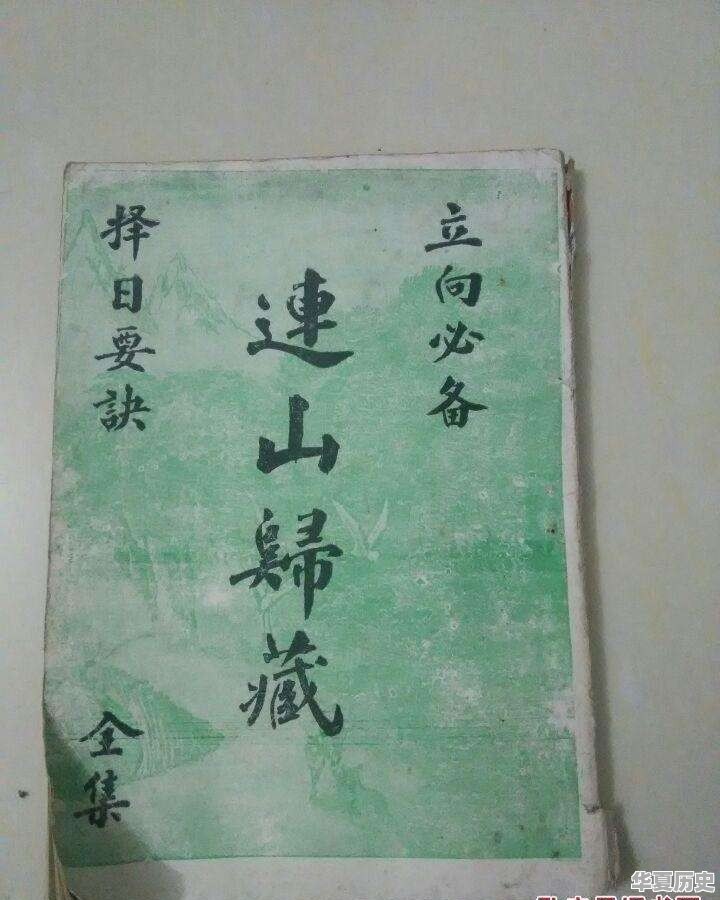 立向必备
連山歸藏
择日要訣
全集
华夏历史